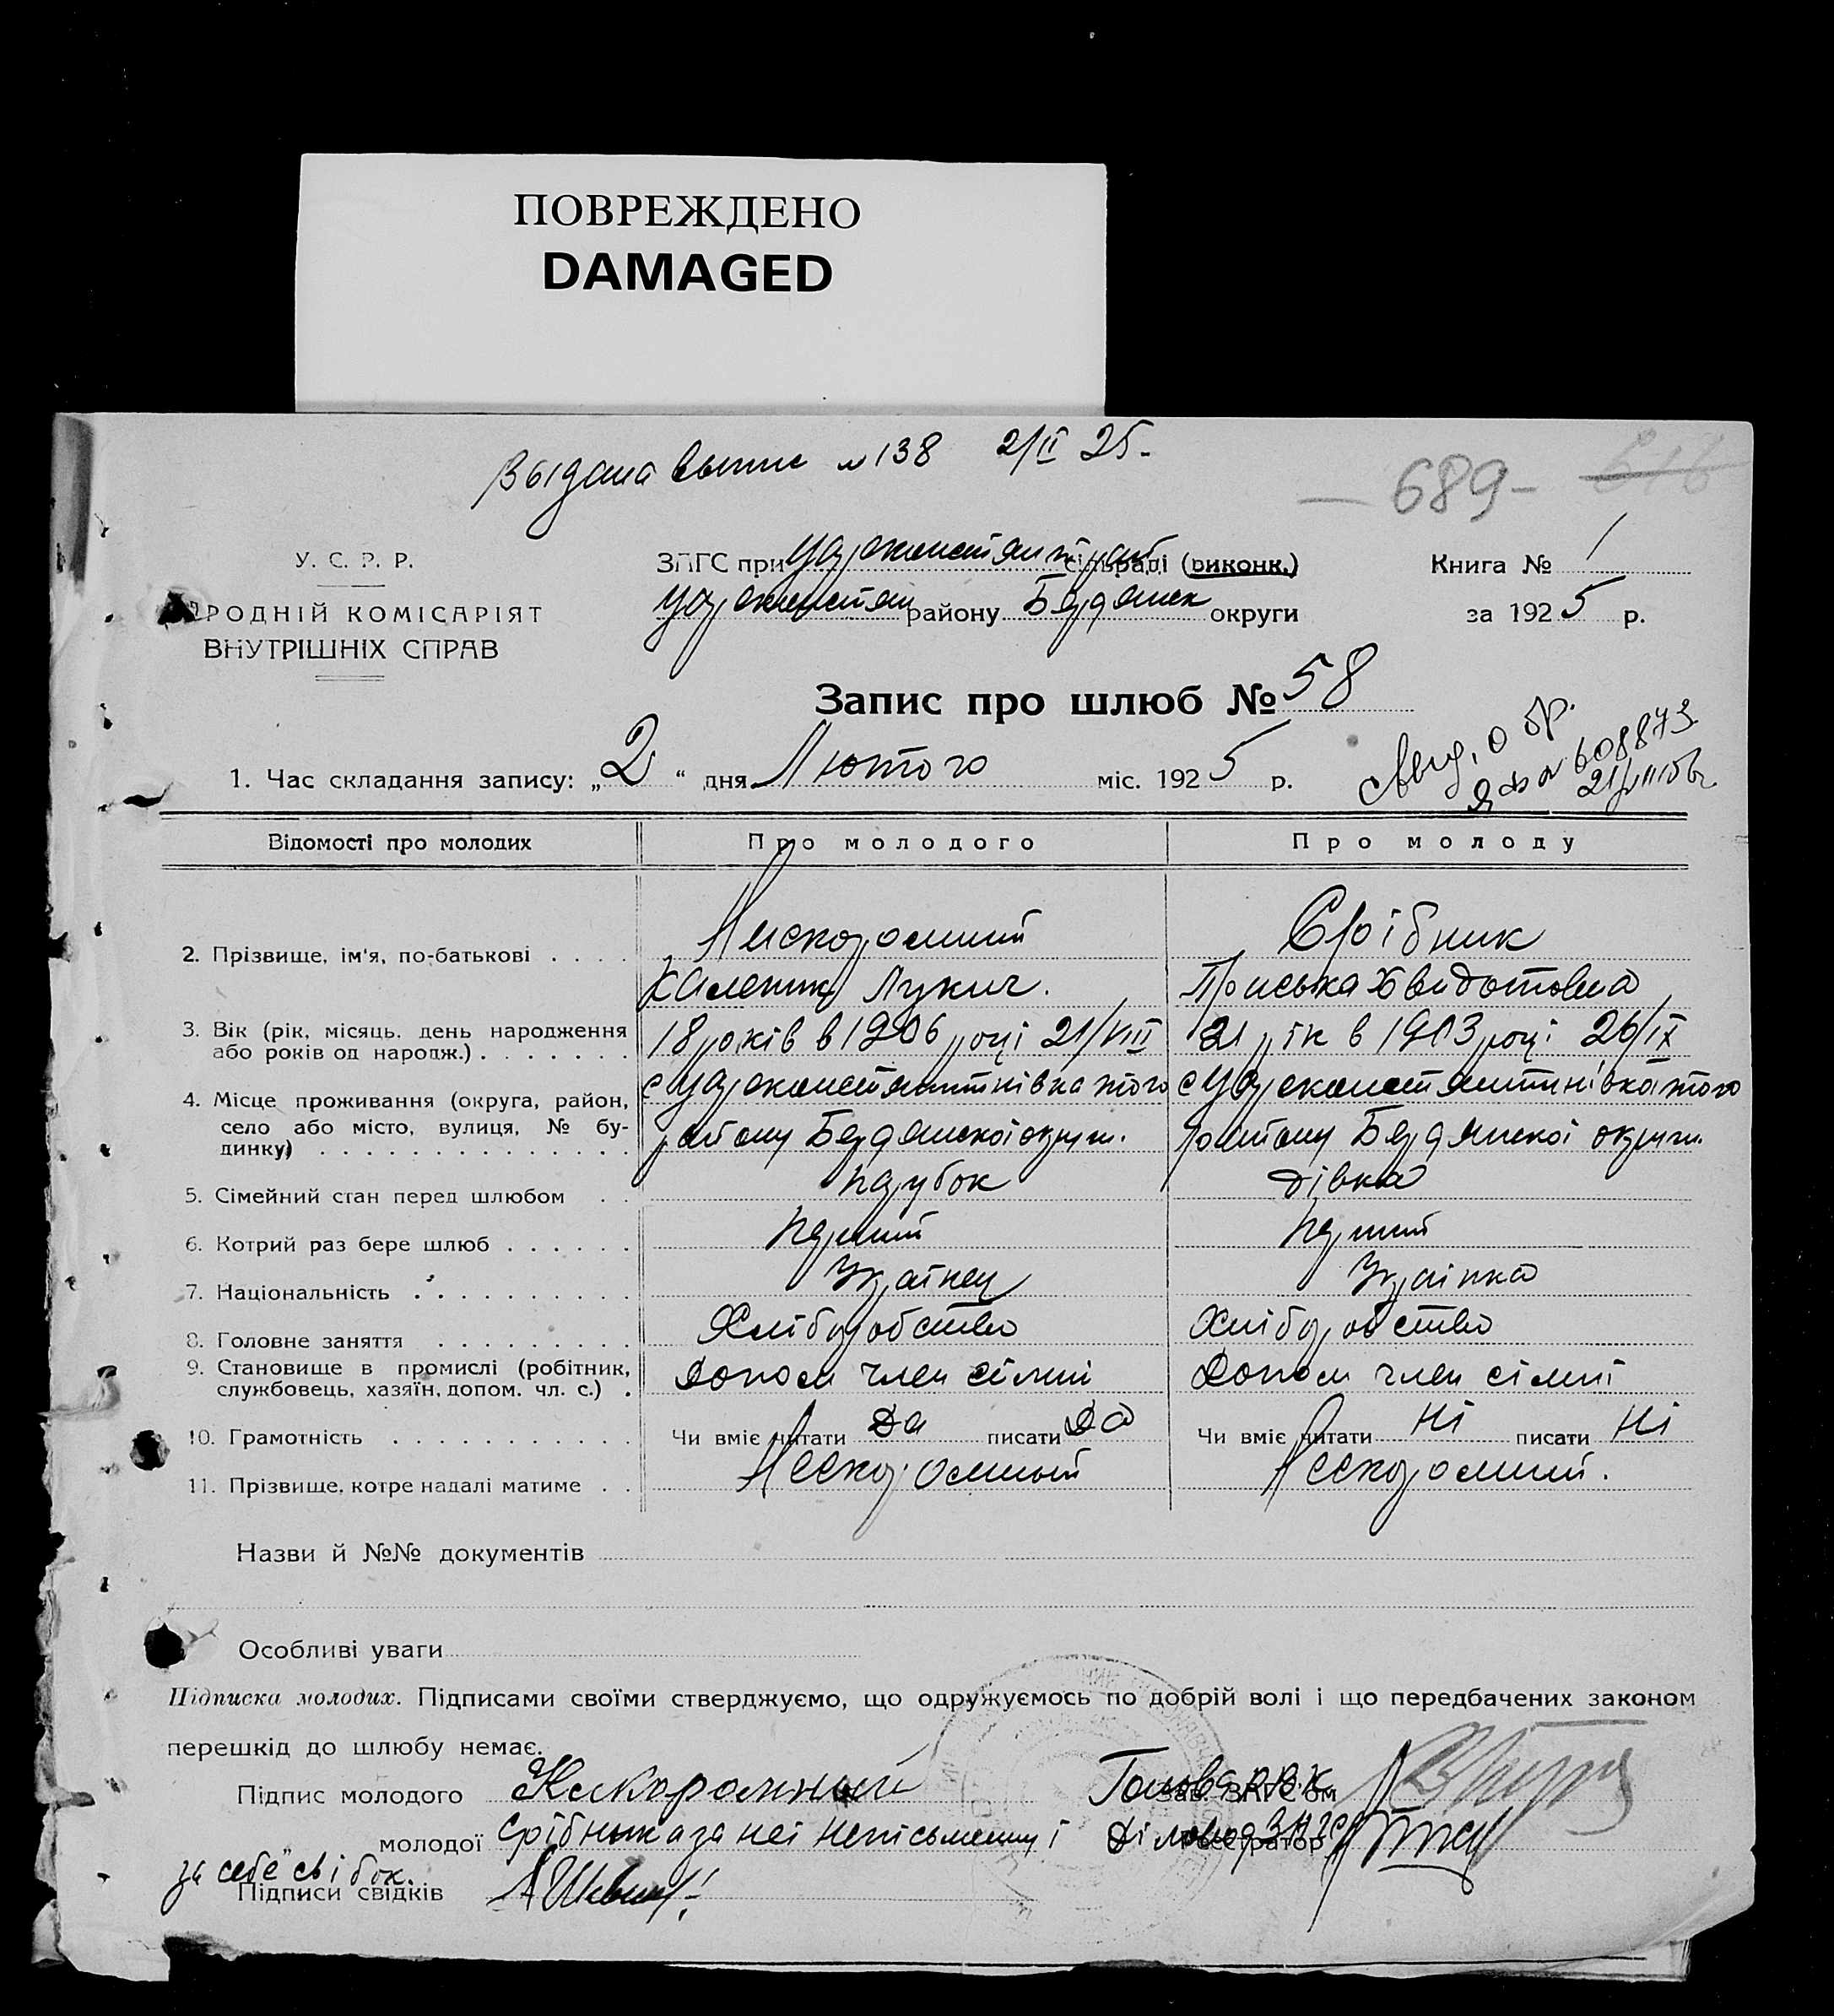 ПОВРЕЖДЕНО
DAMAGED
Выдана выпис № 138 2/II 25-
— 689 -
У. С. Р. Р.
РОДНІЙ КОМІСАРІЯТ
ВНУТРІШНІХ СПРАВ
ЗАГС при Цареконстянт сільраді (виконк.)
Цареконстян району Бердянск округи
Книга № 1
за 1925 р.
Запис про шлюб № 58
1. Час складання запису: „2“ дня Лютого міс. 1925 р.
608873
Відомості про молодих Про молодого Про молоду
2. Прізвище, ім'я, по-батькові . . . . Нискоромний Срібник
Каленик Лукич. Приська Хведотовна
3. Вік (рік, місяць, день народження або років од народж.) . . . . . . . 18 років в 1906 році 21/VIII 21 рік в 1903 році 26/IX
4. Місце проживання (округа, район, село або місто, вулиця, № будинку) . . . . . . . . . . . . . . с Цареконстянтинівка того с Цареконстянтинівка того
району Бердянскої округи. району Бердянскої округи.
5. Сімейний стан перед шлюбом . . парубок дівка
6. Котрий раз бере шлюб . . . . . . перший перший
7. Національність . . . . . . . . . . Українец Українка
8. Головне заняття . . . . . . . . . Хліборобство Хліборобство
9. Становище в промислі (робітник, службовець, хазяїн, допом. чл. с.) . Допом член сімиї Допом член сімиї
10. Грамотність . . . . . . . . . . . Чи вміє читати Да писати Да Чи вміє читати Ні писати Ні
11. Прізвище, котре надалі матиме . . Нескоромный Нескоромний.
Назви й №№ документів
Особливі уваги
Підписка молодих. Підписами своїми стверджуємо, що одружуємось по добрій волі і що передбачених законом
перешкід до шлюбу немає.
Підпис молодого Нискоромный Голова Зав. ЗАГС'ом
молодої Срібныка за неї неписьменну і Діловод ЗАГС Реєстратор
за себе" свідок.
Підписи свідків